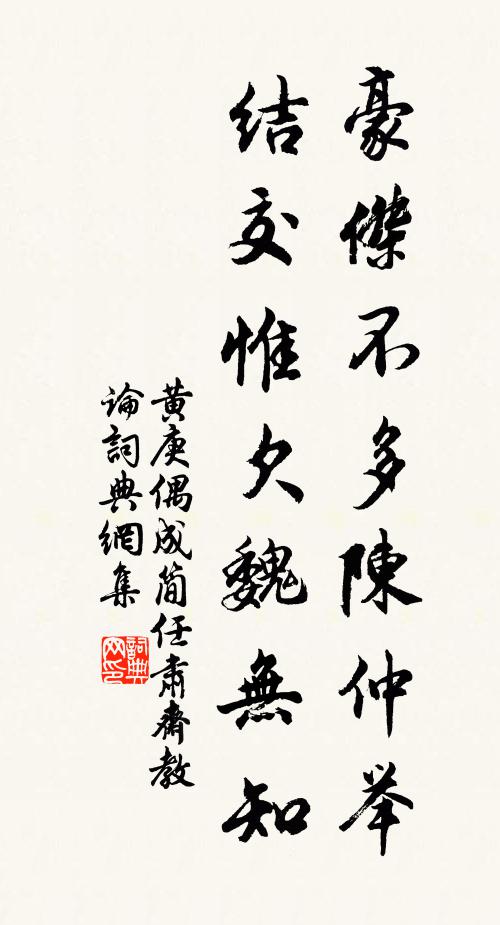 豪傑不多陳仲举
結交惟欠魏無知
黃庚偶成简任肅齋教
論詞典網集
詞典
网印